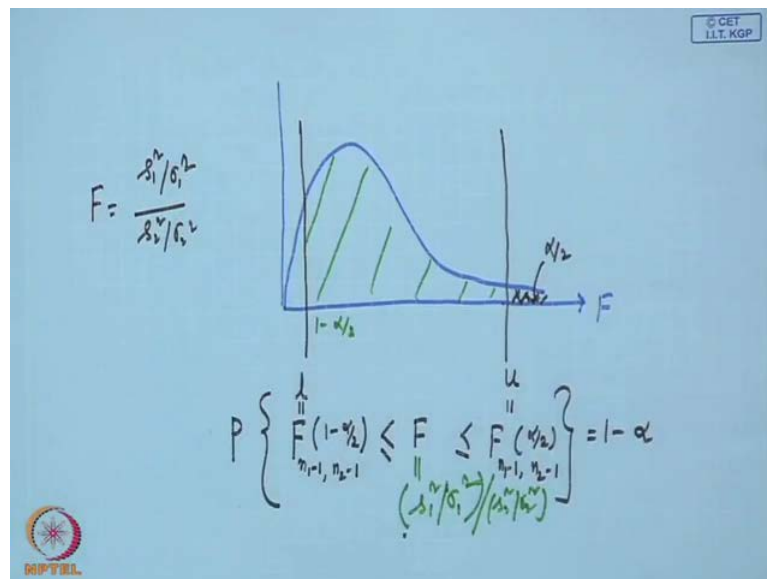 © CET
I.I.T. KGP
F = (s₁²/σ₁²) / (s₂²/σ₂²)
α/2
F
1 - α/2
l u
|| ||
P { F(1-α/2) ≤ F ≤ F(α/2) } = 1 - α
n₁-1, n₂-1 || n₁-1, n₂-1
(s₁²/σ₁²)/(s₂²/σ₂²)
NPTEL